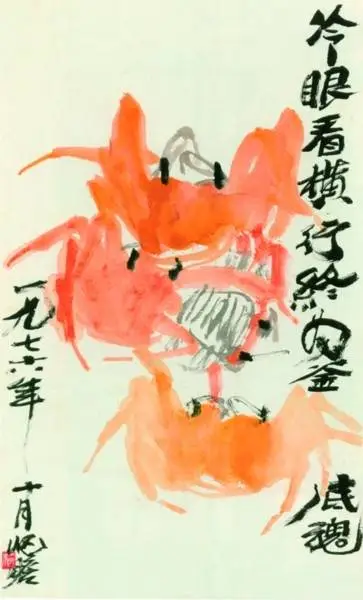 冷眼看横行終为釜
底魂
一九七六年
十月